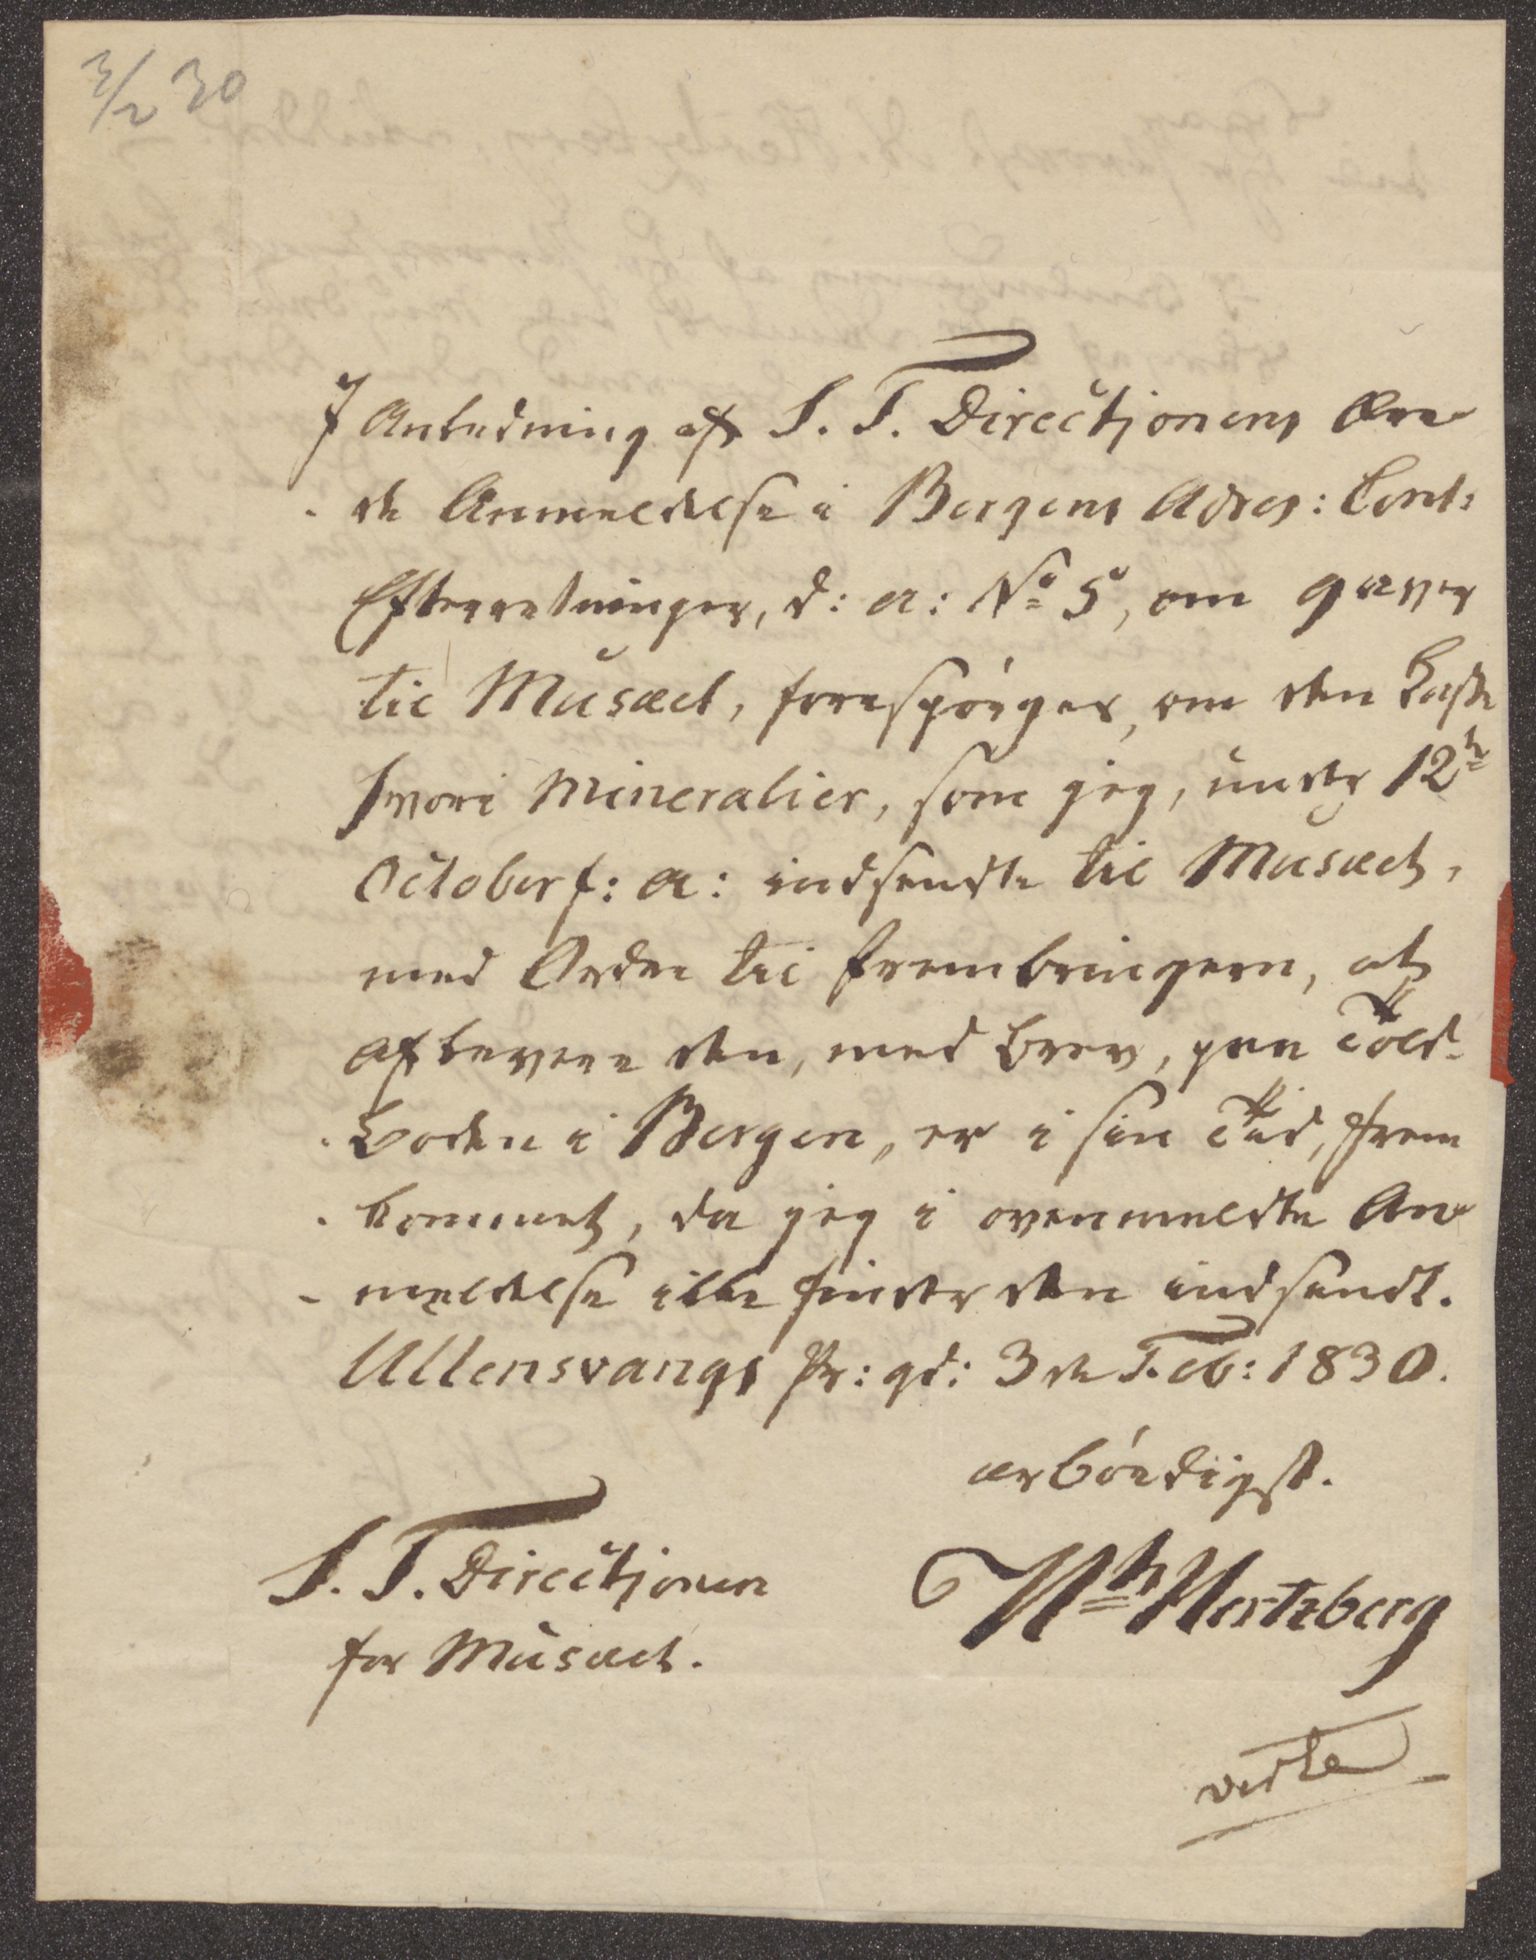 3/2 30
I Anledning af S. T. Directjonens ære
- de Anmeldelse i Bergens Adres: Cont:
Efterretninger, d: a: No 5, om gaver
til Musæet, forespörges, om den Kasse
hvori Mineralier, som jeg, under 12te
October f: a: indsendte til Musæet,
med Ordre til frembringeren, at
aflevere den, med brev, paa Told-
- boden i Bergen, er i sin Tid, frem
- kommet, da jeg i ovenmeldte An
- meldelse ikke finder den indsendt.
Ullensvangs Pr: gd: 3de Feb: 1830.
ærbödigst.
S. T. Directjonen
for Musæet.
Hertzberg